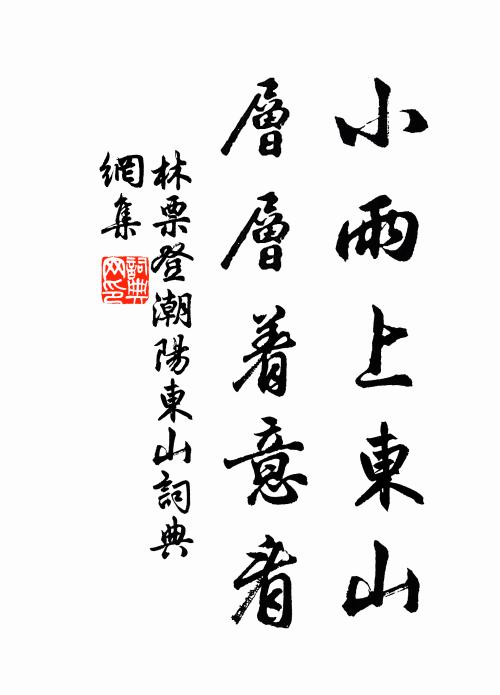 小雨上東山
層層着意看
林栗登潮陽東山詞典
網集
詞典
网印